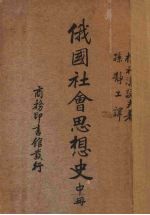 孫靜工譯
俄國社會思想史中冊
商務印書館發行